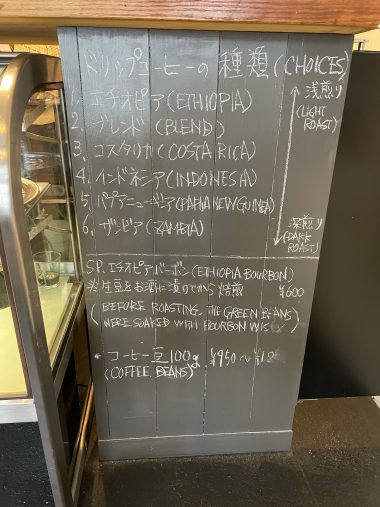 ドリップコーヒーの種類(CHOICES)
1. エチオピア(ETHIOPIA)
2. ブレンド(BLEND)
3. コスタリカ(COSTA RICA)
4. インドネシア(INDONESIA)
5. パプアニューギニア(PAPIANEWGUINEA)
6. ザンビア(ZAMBIA)
浅煎り
(LIGHT
ROAST)
深煎り
(DARK
ROAST)
SP. エチオピアバーボン(ETHIOPIA BOURBON)
※生豆をお酒に漬けてから焙煎 ¥600
(BEFORE ROASTING, THE GREEN BEANS
WERE SOAKED WITH BOURBON)
・コーヒー豆100g ¥950〜
(COFFEE BEANS)